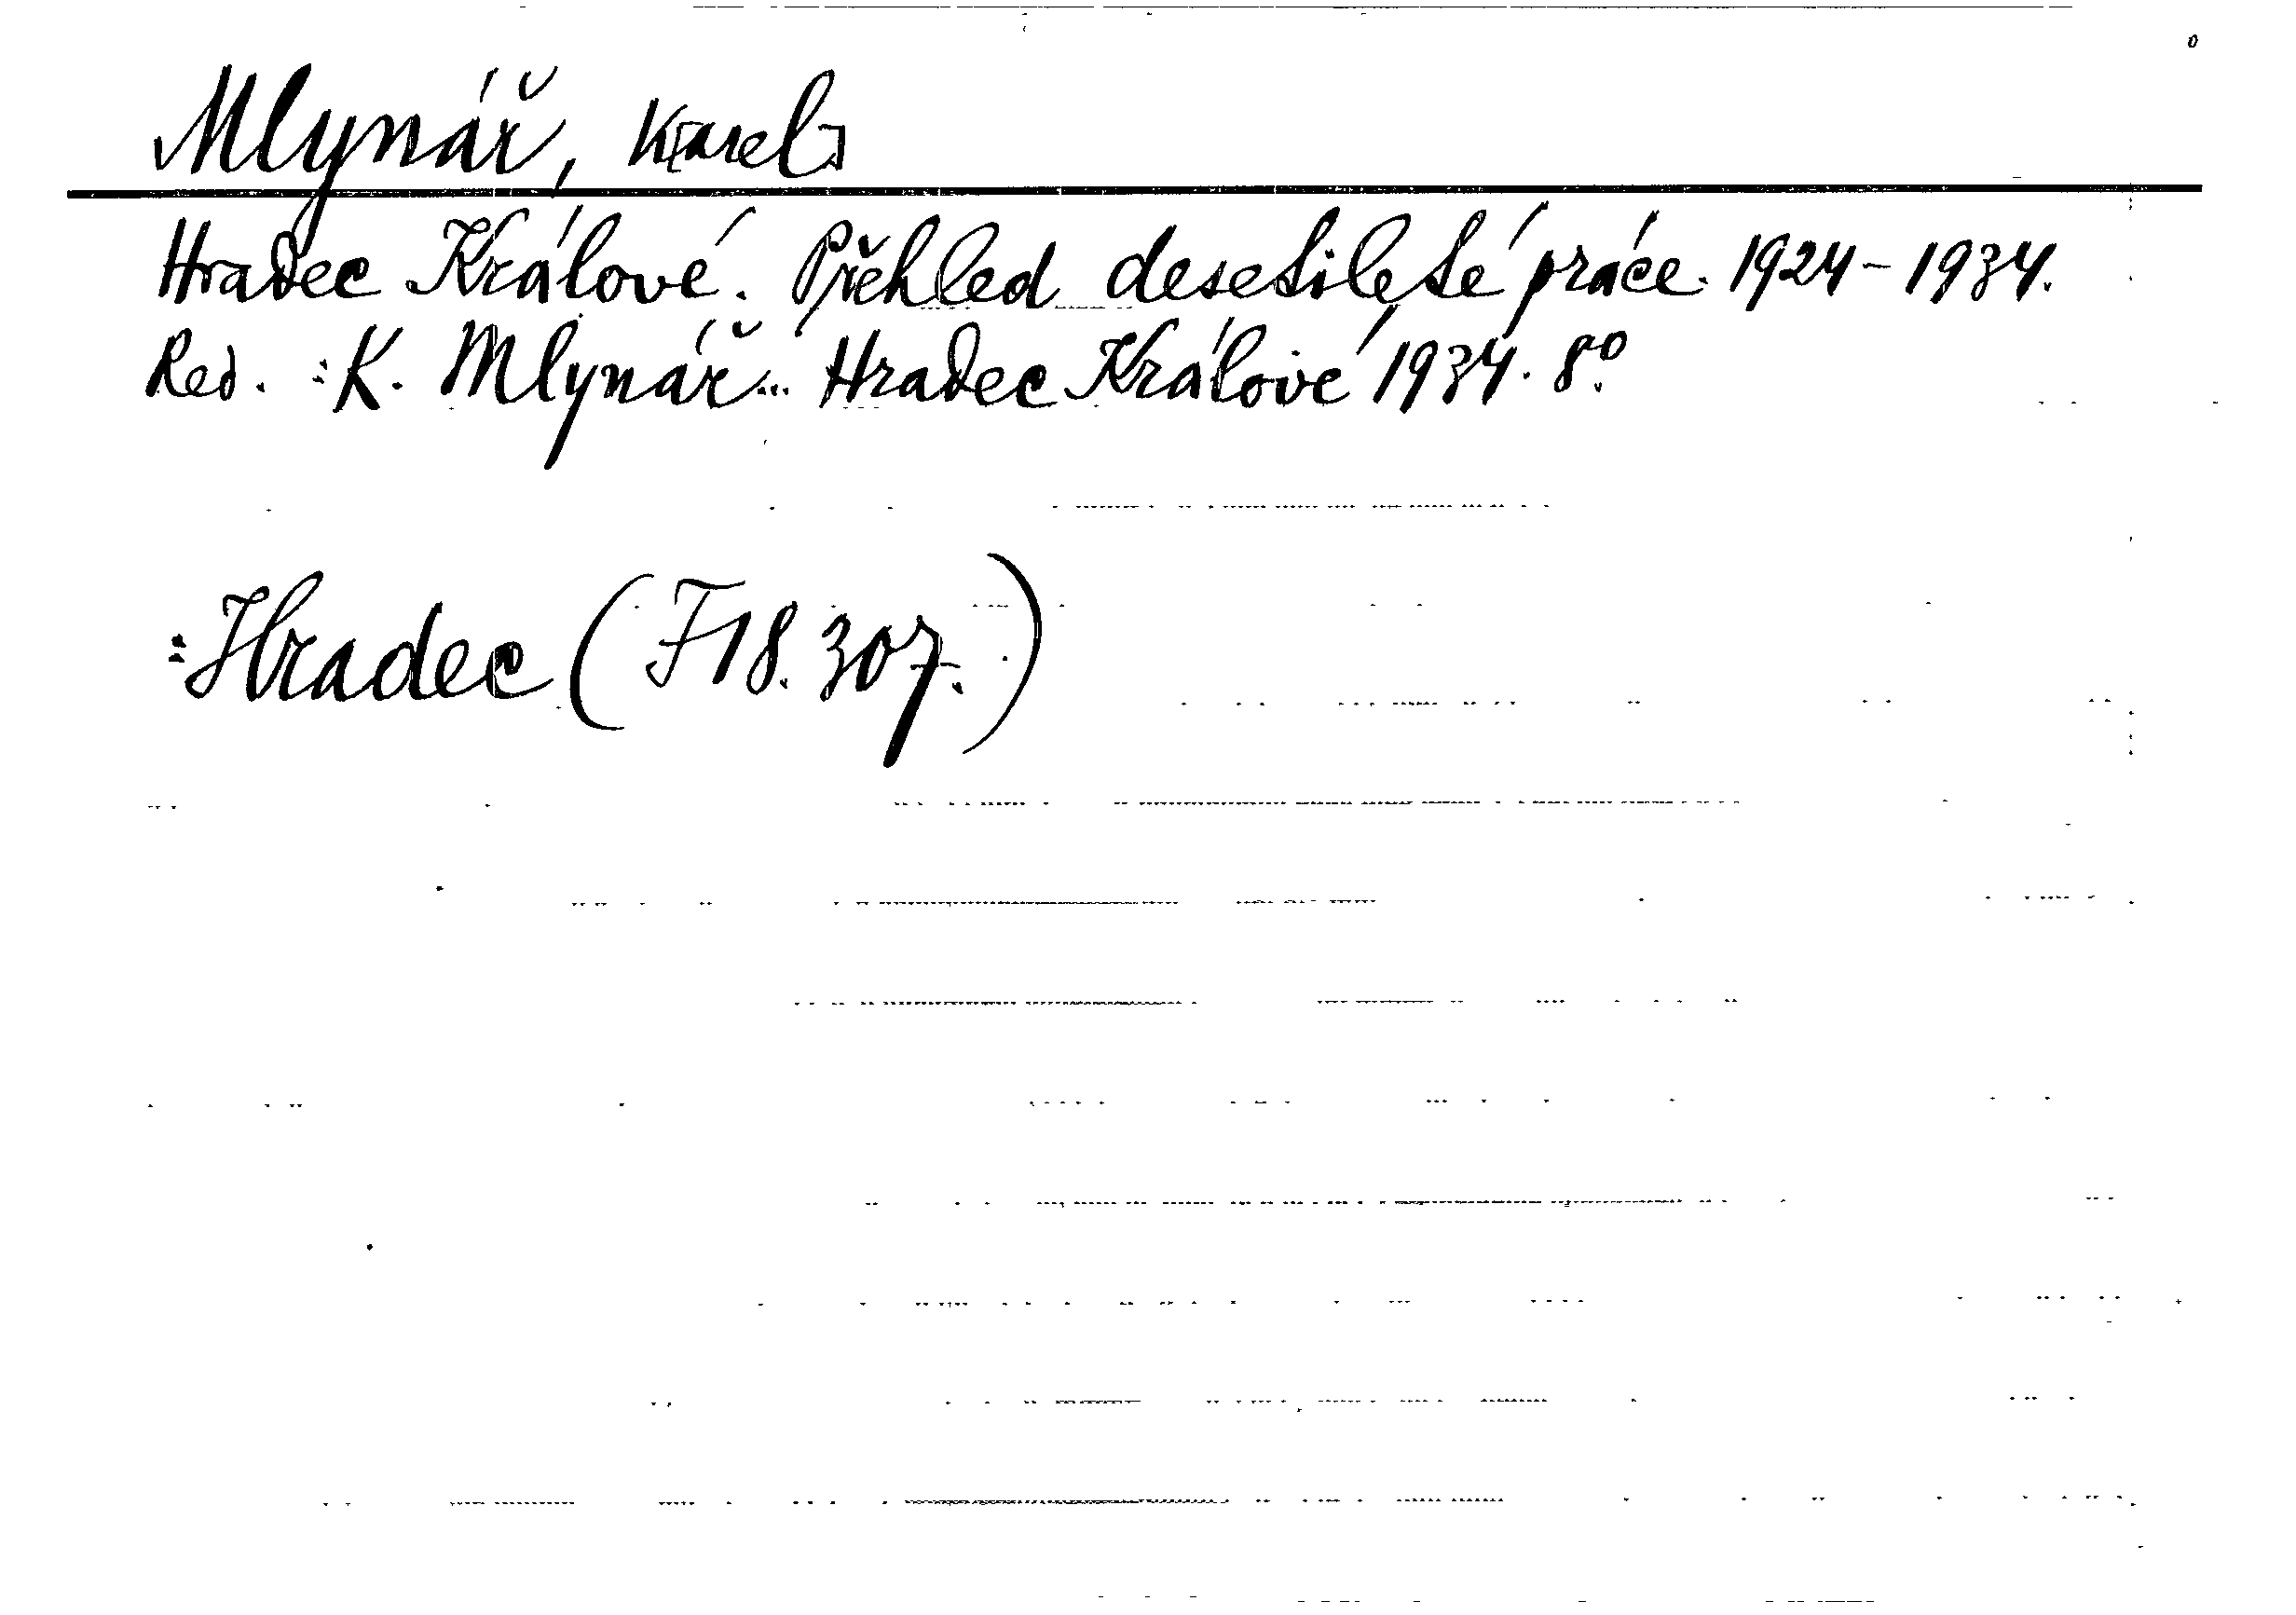 Mlynář, K[arel]
Hradec Králové. Přehled desetileté práce. 1924-1934.
Red. :K. Mlynář... Hradec Králové 1934. 8º.
:Hradec (F18.307.)